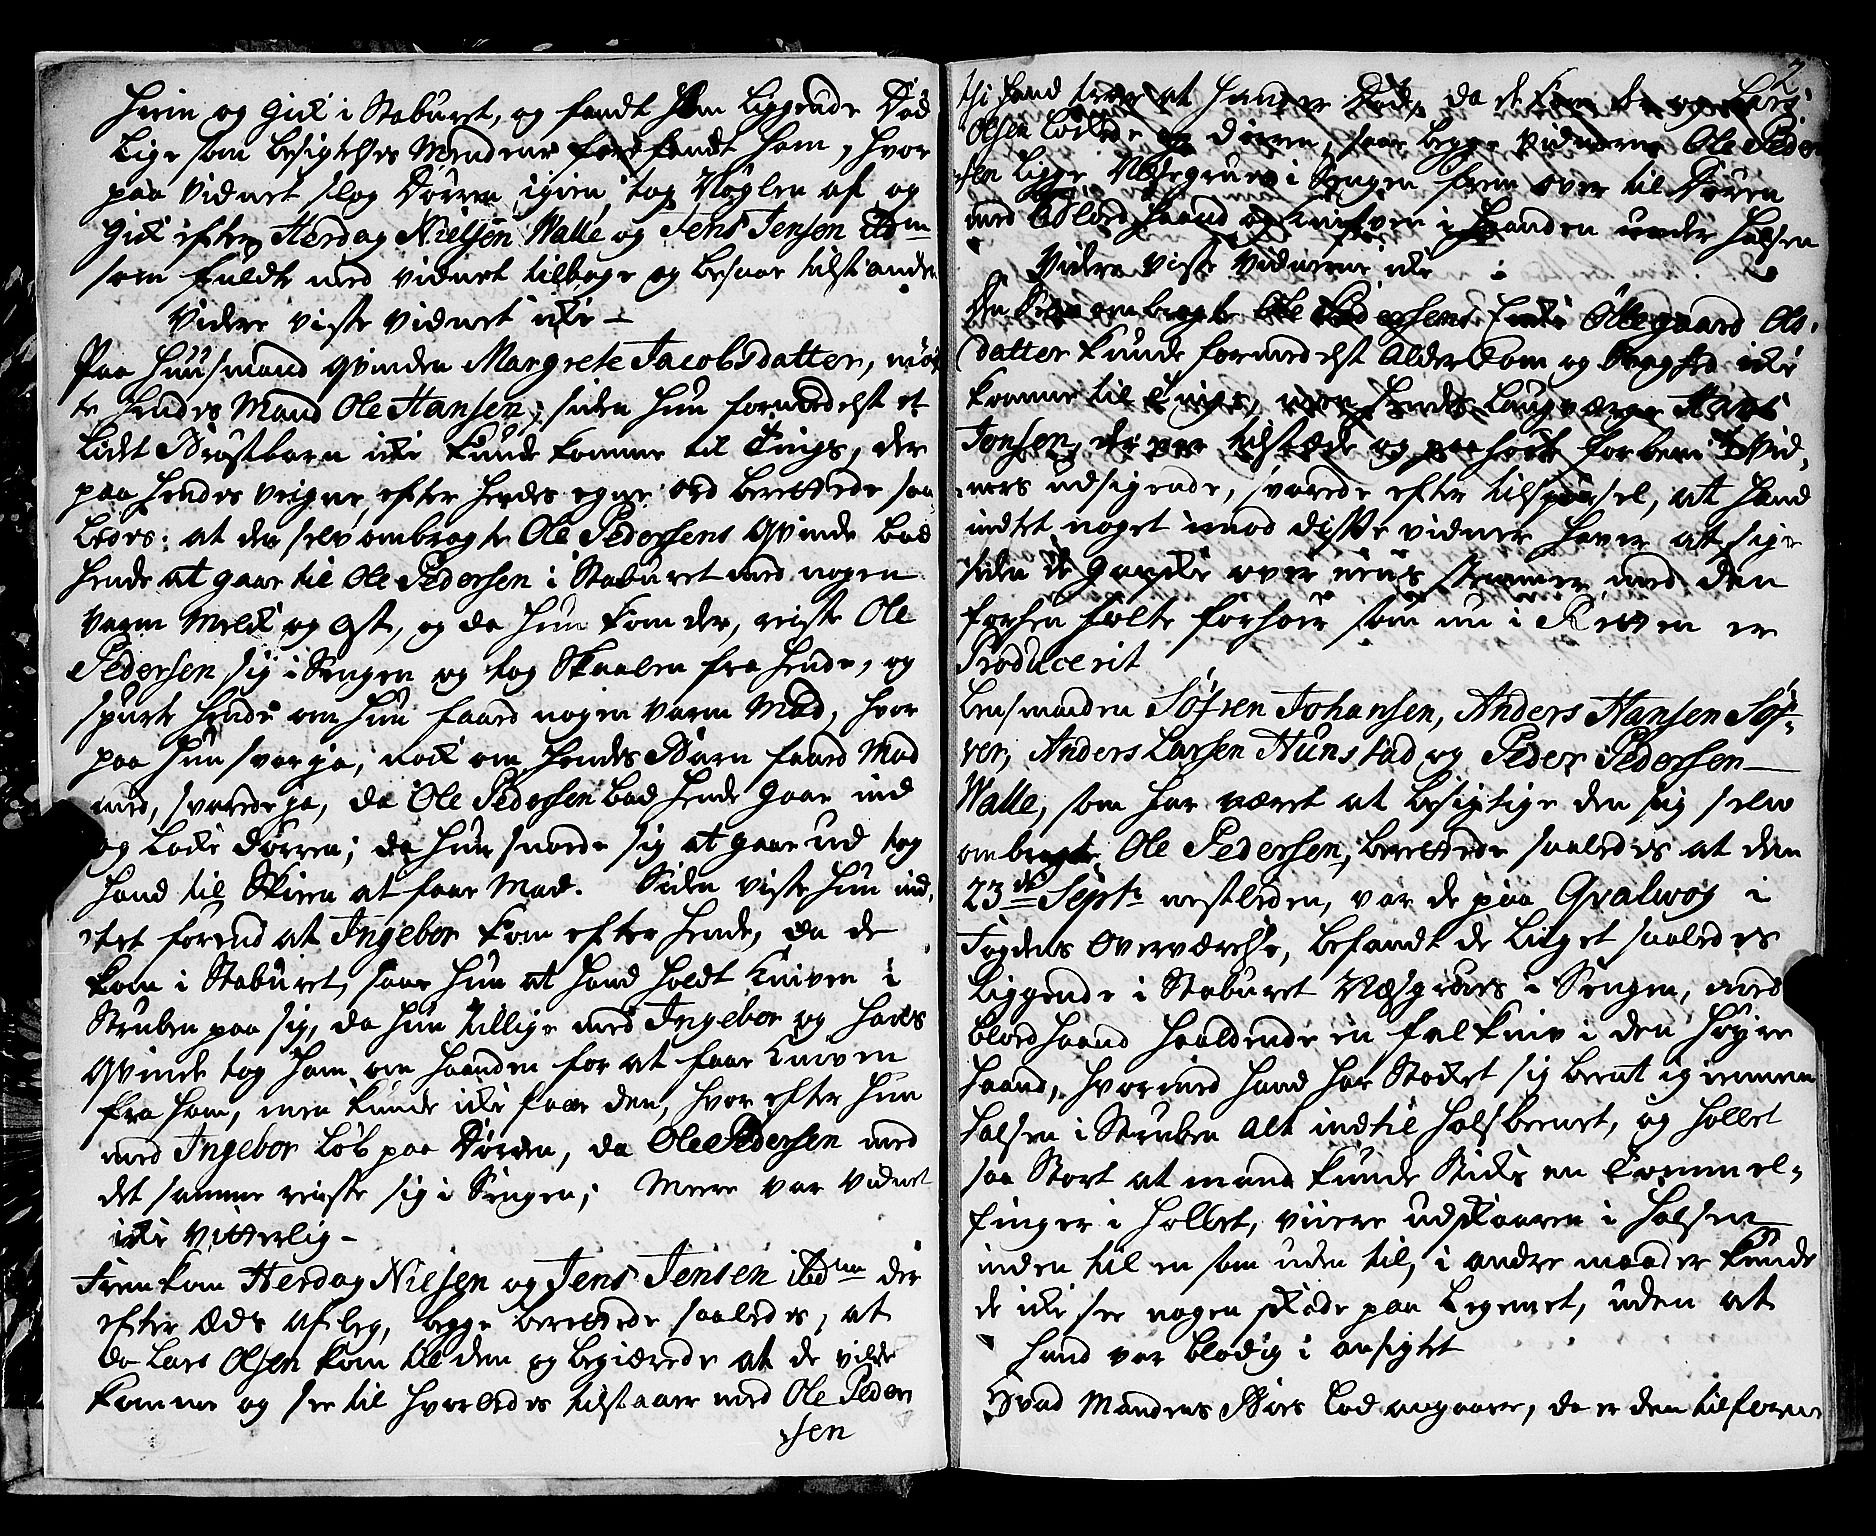 hiem og gick i Staburet, og fandt ham liggende Død
lige som besigtelses Mendene forefandt ham, hvor
paa Vidnet slog Dørren igien, tog Nøglen af og
gick efter Herdag Nielsen Walle og Jens Jensen ibdm
som fuldte med vidnet tilbage og besaae tilstanden
Videre viste vidnet icke -
Paa Huusmand qvinden Margrete Jacobsdatter, mød
te hendes Mand Ole Hansen, siden hun formedelst et
lidet Brystbarn icke kunde komme til Tings, der
paa hendes veigne, efter hendes egne ord berettede saa
ledes: at den selv ombragte Ole Pedersens Qvinde bad
hende at gaae til Ole Pedersen i Staburet med nogen
varm Melck og Ost, og da hun kom der, reiste Ole
Pedersen sig i Sengen og tog Skaalen fra hende, og
spurte hende om hun faaed nogen varm Mad, hvor
paa hun svar ja, nock om hendes Barn faaed Mad
med, svarede ja, da Ole Pedersen bad hende gaae ind
og lucke dørren; da hun snoede sig at gaae ud tog
hand til Skeen at faae Mad. Siden viste hun ind,
tet forend at Ingebor kom efter hende, da de
kom i Staburet, saae hun at hand holdt kniven i
Struben paa sig, da hun tillige med Ingebor og hands
Qvinde tog ham om haanden for at faae kniven
fra ham, men kunde icke faae den, hvor efter hun
med Ingebor løb paa Dørren, da Ole Pedersen med
det samme reiste sig i Sengen; Meere var vidnet
icke vitterlig -
Fremkom Herdag Nielsen og Jens Jensen ibdm der
efter Æds aflæg, begge berettede saaledes, at
da Lars Olsen kom til dem og begiærede at de vilde
komme og see til hvorledes tilstaaer med Ole Peder
sen
2
thi hand troer at hand er Død, da de kom der og Lars
Olsen lodde op døren, saae begge vidnerne Ole Peder
sen ligge Næsegruus i Sengen frem over til Døren
med blod haand og kniften i haanden under halsen
Videre viste Vidnerne icke
Den selv ombragte Ole Pedersens Encke Ollegaard Ols,
datter kunde formedelst Alderdom og svaghed icke
komme til Tings, men hendes laugværge Hans
Jonsen, der var tilstæde og paa hørte forbem Vid,
ners udsigende, svarede efter tilspørsel, at hand
indtet noget imod disse vidner haver at sige
siden de gandske over eens stemmer med den
forhen holte forhør som nu i Retten er
Producerit
Lensmanden Søfren Johansen, Anders Hansen Søf-
ren, Anders Larsen Hunstad og Peder Pedersen
Walle, som har været at besigtige den sig selv
ombragte Ole Pedersen, berettede saaledes at den
23de Septr nestleden, var de paa Qvalwog i
Fogdens Overværelse, befandt de liiget saaledes
liggende i Staburet Næsgruus i Sengen, med
blod haand haaldende en fal kniv i den høyre
haand, hvormed hand har Stocket sig beent igiennem
halsen i Struben alt indtil halsbeenet, og hollet
saa Stort at mand kunde Sticke en Tommel-
finger i hollet, viiere udskaaren i halsen
inden til en som uden til, i andre maader kunde
de icke see nogen skade paa legemet, uden at
hand var blodig i ansigtet
Hvad Mandens Boes lod angaaer, da er den tilforn